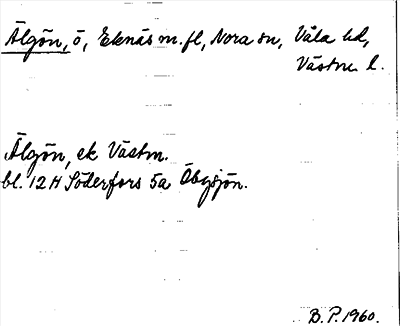 Älgön, ö, Eknäs m.fl, Nora sn, Våla hd,
Västm l.
Älgön, ek Västm.
bl. 12 H Söderfors 5a Öbysjön.
B. P. 1960.